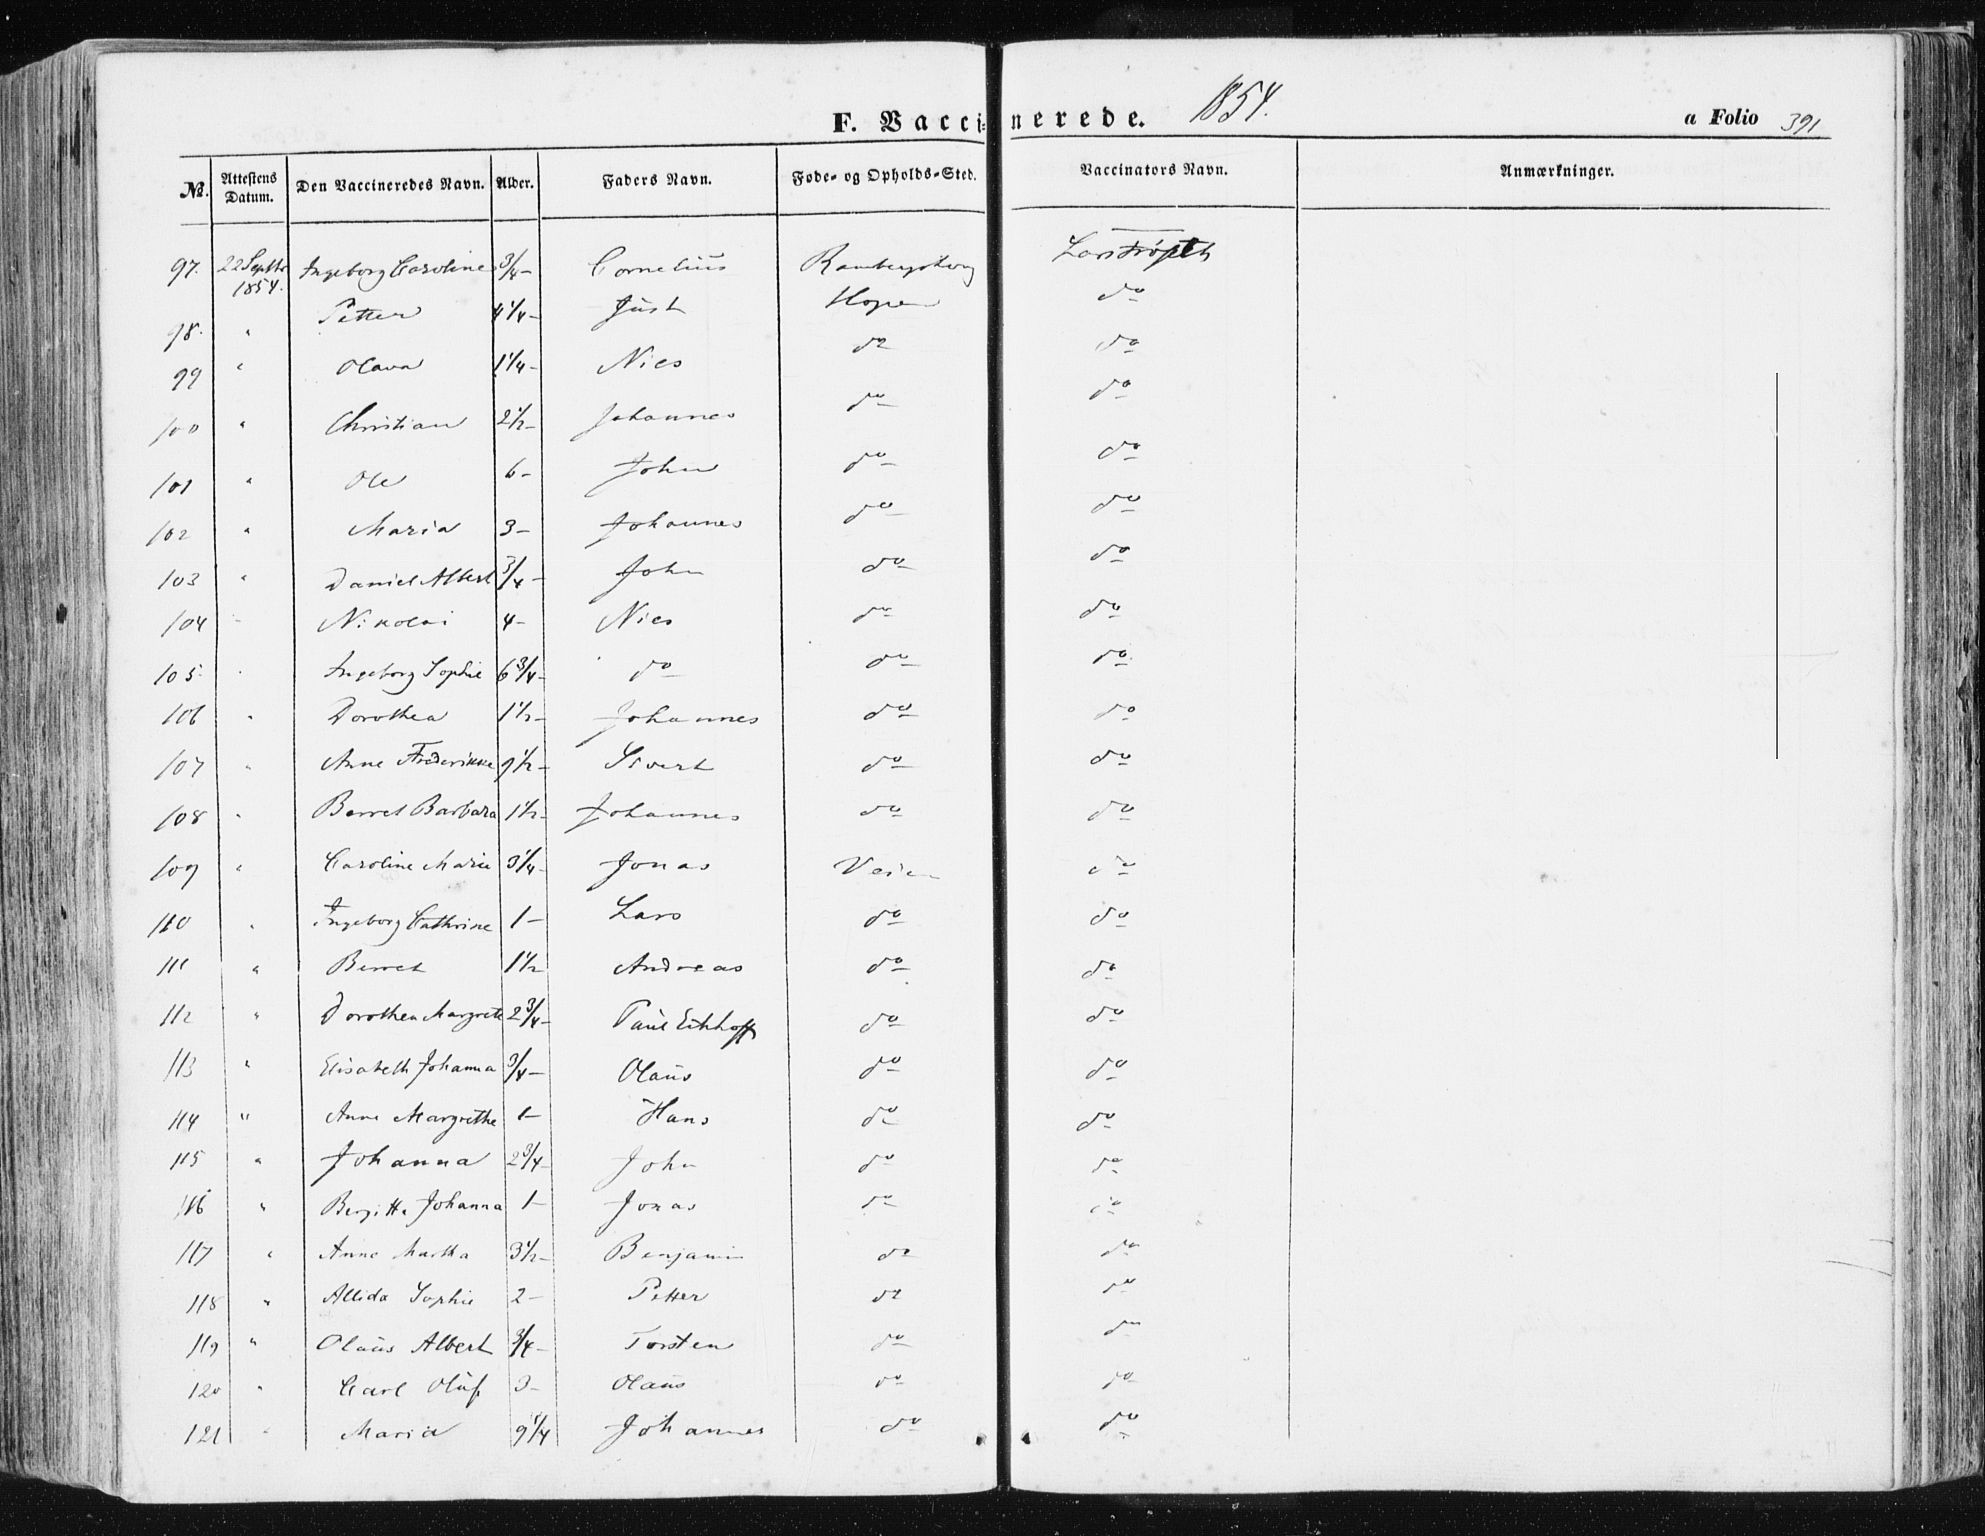 F. Vaccinerede. 1854.
a Folio 391
No. Attestens Datum. Den Vaccineredes Navn. Alder. Faders Navn. Føde- og Opholds-Sted. Vaccinators Navn. Anmærkninger.
97. 22 Septbr 1854. Ingeborg Caroline 3/4- Cornelius Lars
98. " Petter 4 1/4- Just Hopen do
99 " Olava 1 1/4- Nils do do
100 " Christian 2 1/2- Johannes do do
101 " Ole 6- John do do
102 " Maria 3- Johannes do do
103 " Daniel Albert 3/4- John do do
104 " Nikolai 4- Nils do do
105. " Ingeborg Sophie 6 3/4- do do do
106 " Dorothea 1 1/2- Johannes do do
107 " Anne Frederikke 9 1/2- Sivert do do
108 " Berret Barbara 1 1/2- Johannes do do
109 " Caroline Marie 3 1/4- Jonas Veien do
110 " Ingeborg Cathrine 1- Lars do do
111 " Berret 1 1/2 Andreas do do
112 " Dorothea Margrete 2 3/4- Paul Eckhoff do do
113 " Elisabeth Johanna 3/4- Olaus do do
114 " Anne Margrethe 1- Hans do do
115 " Johanna 2 3/4- John do do
116 " Bergitte Johanna 1- Jonas do do
117 " Anne Martha 3 1/2- Benjamin do do
118 " Allida Sophie 2- Petter do do
119 " Olaus Albert 3/4- Torsten do do
120 " Carl Oluf 3- Olaus do do
121 " Maria 9 1/4 Johannes do do